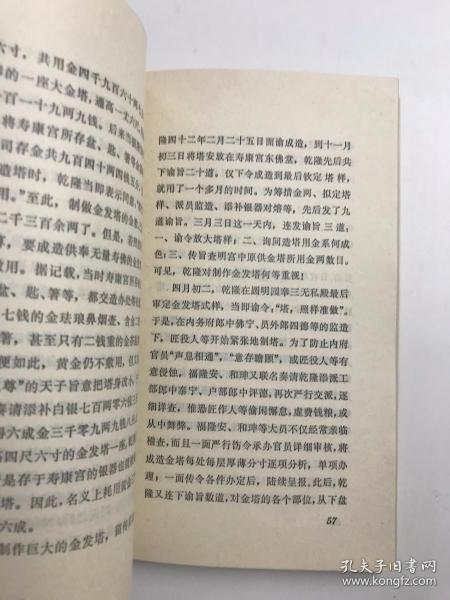 六寸，共用金四千九百六十两
的一座大金塔，通高一丈六尺
一百一十九两九钱，后来
将寿康宫所存盆、匙、箸
司存金共九百四十两四钱
造塔时，乾隆当即表示同意，
用。”至此，制做金发塔的
二千三百余两了。但是，
，要成造供奉无量寿佛的
敷用。据记载，当时寿康宫
盆、匙、箸等，都交造办处
七钱的金珐琅鼻烟壶、含金
箸，甚至只有二钱重的金
便如此，黄金仍不敷用，
尊”的天子旨意把塔身改
奏请添补白银七百两零六
得六成金三千零九两
高四尺六寸的金发塔一座，
是存于寿康宫的银器也
塔。因此，名义上耗用黄
六成。
制作巨大的金发塔，
隆四十二年二月二十五日面谕成造，到十一月
初三日将塔安放在寿康宫东佛堂，乾隆先后共
下谕旨二十道。仅下令成造到最后钦定塔样，
就用了一个多月的时间。为筹措金两、拟定塔
样、派员监造、添补银器对熔等，先后发了九
道谕旨。三月三日这一天内，连发谕旨三道，
一、谕令放大塔样；二、询问造塔用金系何成
色；三、传旨查明宫中原供金塔所用金两数目。
可见，乾隆对制作金发塔何等重视！
四月初二，乾隆在圆明园奉三无私殿最后
审定金发塔式样，当即谕令，“塔，照样准做”。
于是，在内务府郎中佛宁、员外郎四德等的监造
下，匠役人等开始紧张地制塔。为了防止内府
官员“声息相通”，“意存瞻顾”，或匠役人等有
意侵蚀，福隆安、和珅又联名奏请乾隆添派工
部郎中泰宁、户部郎中评德，再次严行交派，逐
细详查，惟恐匠作人等偷闲懈怠，虚费钱粮，或
从中舞弊。福隆安、和珅等大员不仅经常亲临
稽查，而且一面严行饬令承办官员详细审核，将
成造金塔每处每层厚薄分寸逐项分析，单项办
理；一面传令各件办定后，陆续呈报。此后，乾
隆又连下谕旨数道，对金塔的各个部位，从下盘
57
孔夫子旧书网
www.kongfz.com